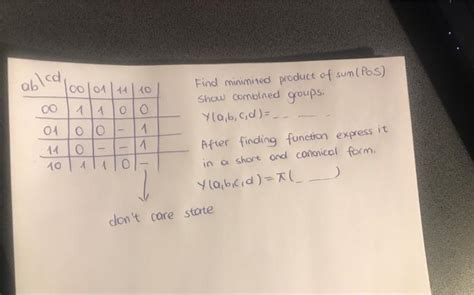 ab\cd 00 01 11 10
00 1 1 0 0
01 0 0 - 1
11 0 - - 1
10 1 1 0 -
don't care state
Find minimised product of sum (PoS)
Show combined groups.
Y(a,b,c,d)=_ _ _ _ _
After finding function express it
in a short and canonical form.
Y(a,b,c,d)=π(_ ___)